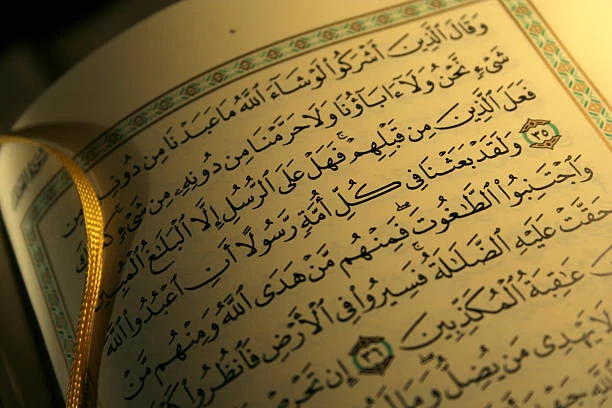 وَقَالَ ٱلَّذِينَ أَشْرَكُوا۟ لَوْ شَآءَ ٱللَّهُ مَا عَبَدْنَا مِن دُونِهِۦ مِن
شَىْءٍ نَّحْنُ وَلَآ ءَابَآؤُنَا وَلَا حَرَّمْنَا مِن دُونِهِۦ مِن شَىْءٍ كَذَٰلِكَ
فَعَلَ ٱلَّذِينَ مِن قَبْلِهِمْ فَهَلْ عَلَى ٱلرُّسُلِ إِلَّا ٱلْبَلَٰغُ ٱلْمُبِينُ
٣٥ وَلَقَدْ بَعَثْنَا فِى كُلِّ أُمَّةٍ رَّسُولًا أَنِ ٱعْبُدُوا۟ ٱللَّهَ
وَٱجْتَنِبُوا۟ ٱلطَّٰغُوتَ فَمِنْهُم مَّنْ هَدَى ٱللَّهُ وَمِنْهُم مَّنْ
حَقَّتْ عَلَيْهِ ٱلضَّلَٰلَةُ فَسِيرُوا۟ فِى ٱلْأَرْضِ فَٱنظُرُوا۟ كَيْفَ
عَٰقِبَةُ ٱلْمُكَذِّبِينَ ٣٦ إِن تَحْرِصْ
لَا يَهْدِى مَن يُضِلُّ وَمَا لَهُم